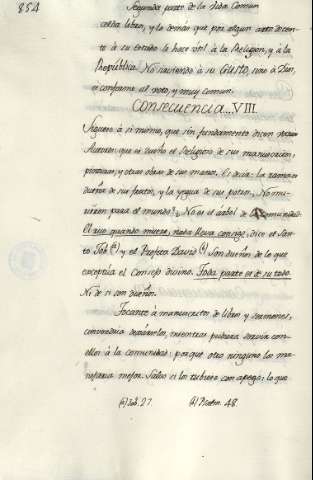 854
Segunda parte de la Vida Comun
celda libros, y lo demás que por algun otro decen-
te à su estado le haze util à la Religion, y à la
Republica. No haviendo à su GUSTO, sino à Dios,
es conforme al voto, y muy comun.
CONSECUENCIA...VIII.
Siguese à si mismo, que sin fundamento dicen
Autores: que es dueño el Religioso de sus manuscritos,
pinturas, y otras obras de sus manos. Es decir: la rama es
dueña de sus frutos, y la yegua de sus potros. No mu-
rieron para el mundo? No es el arbol de Comunidad?
El rico quando muere, nada lleva consigo, dice el San-
to Job (a) y el Profeta David (b) Son dueños de lo que
exceptúa el Consejo divino. Toda parte es de su todo.
Ni de si son dueños.
Tocante à manuscritos de libros y sermones,
convendria dexárselos, mientras pudiera servir con
ellos à la comunidad: porque otro ninguno los ma-
nejaria mejor. Salvo si los tubiere con apego; lo que
(a) Job. 27. (b) Psalm. 48.